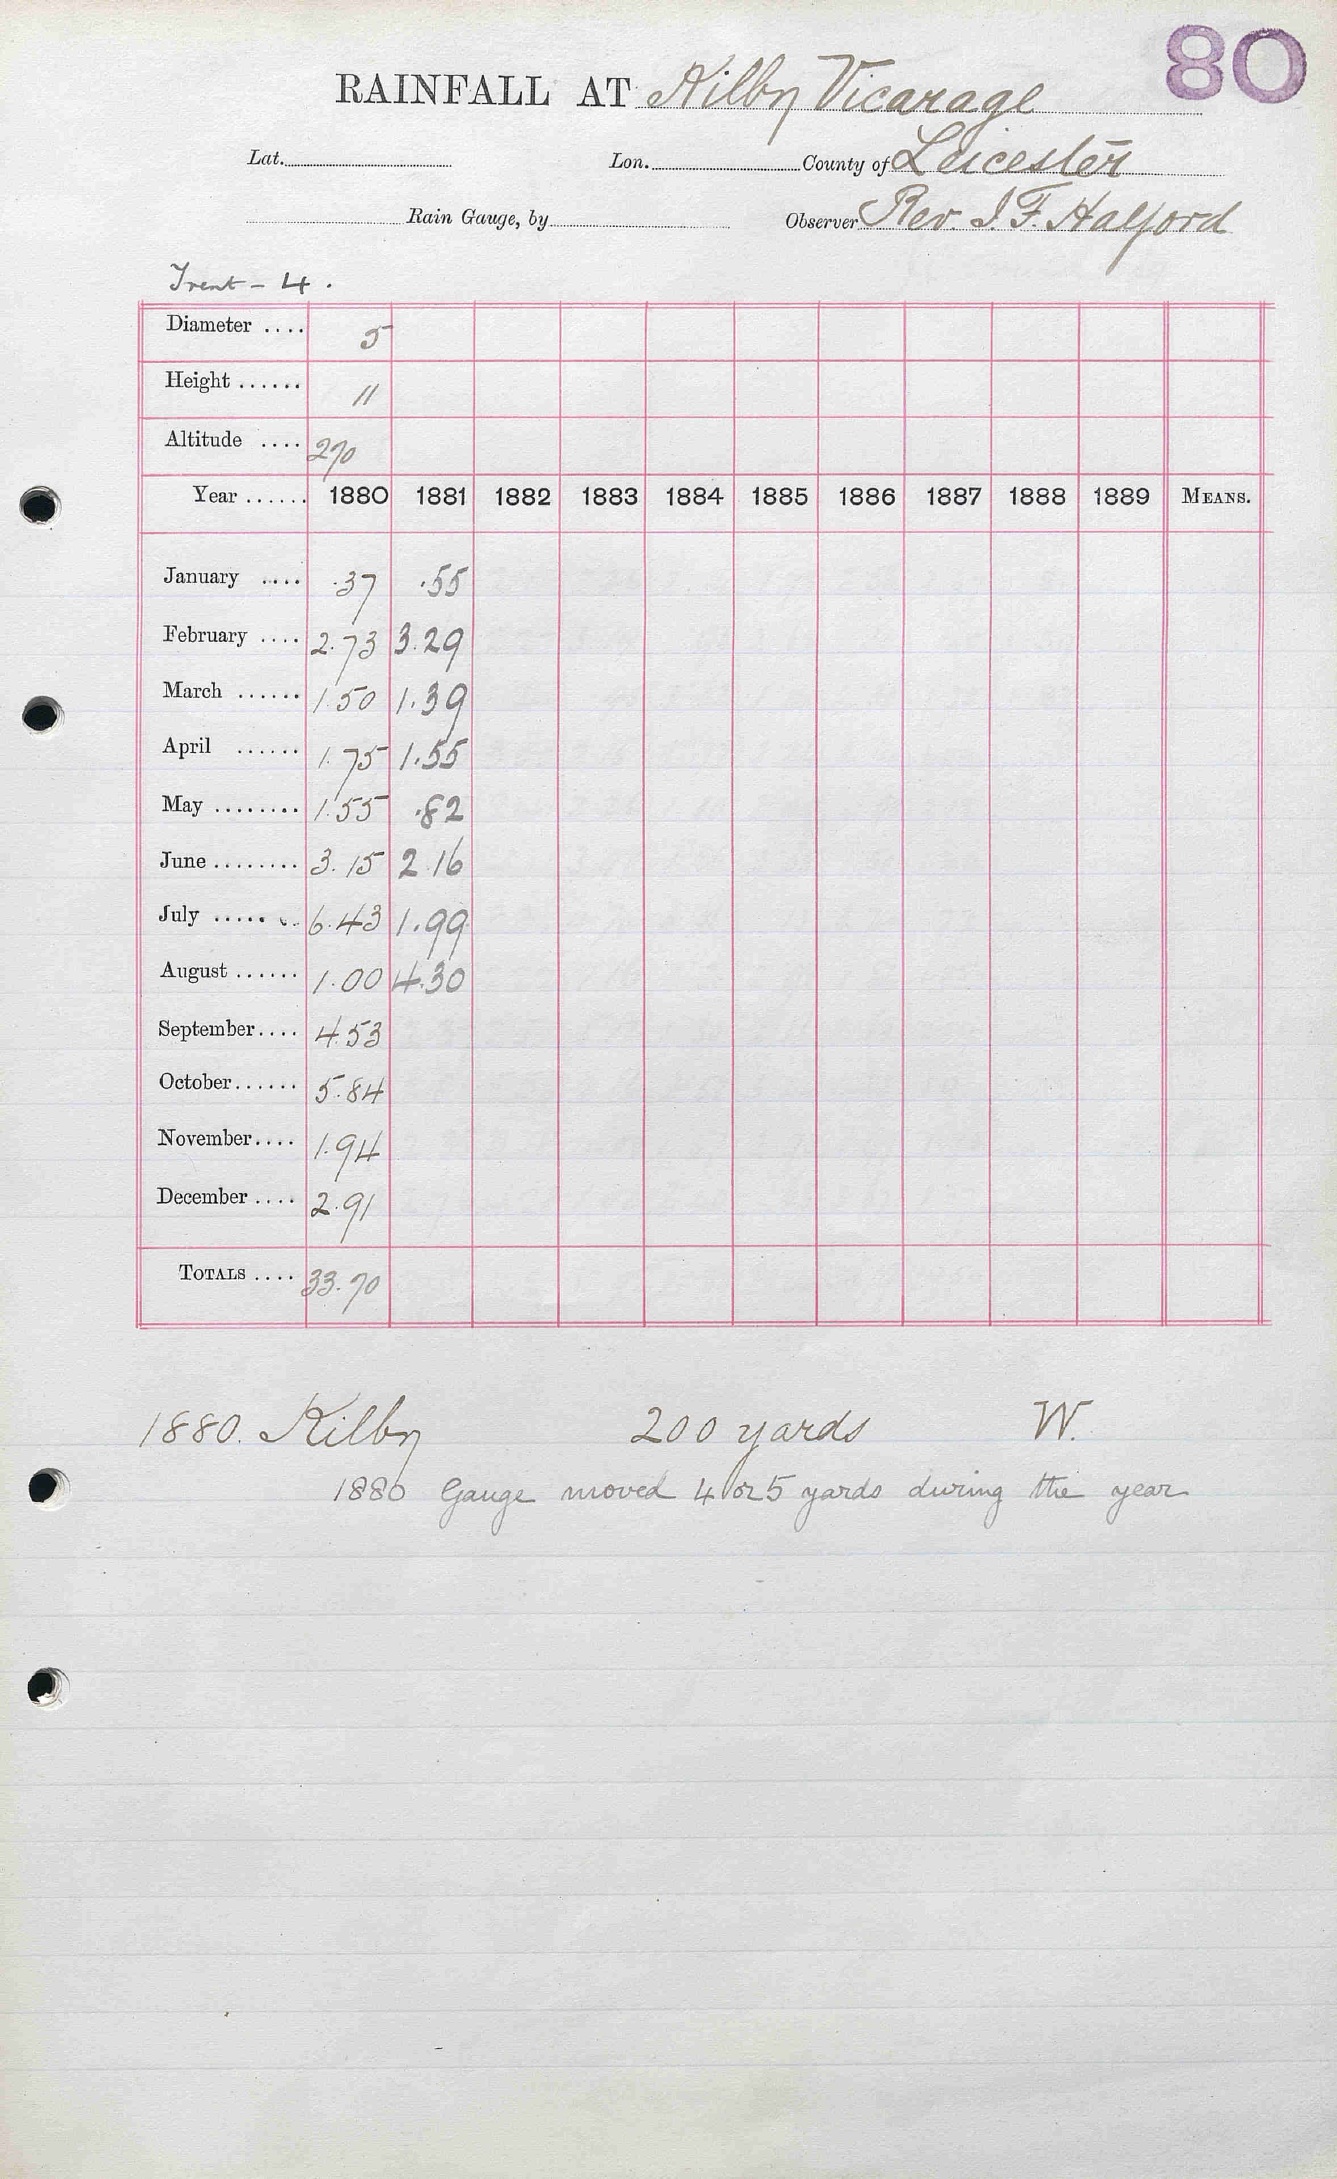 80
RAINFALL AT Kilby Vicarage
Lat. Lon. County of Leicester
Rain Gauge, by Observer Rev. J. F. Halford
Trent - 4.
Diameter .... 5
Height ...... 11
Altitude .... 270
Year ...... 1880 1881 1882 1883 1884 1885 1886 1887 1888 1889 MEANS.
January .... .37 .55
February .... 2.73 3.29
March ...... 1.50 1.39
April ...... 1.75 1.55
May ........ 1.55 .82
June ........ 3.15 2.16
July ........ 6.43 1.99
August ...... 1.00 4.30
September .... 4.53
October ...... 5.84
November .... 1.94
December .... 2.91
TOTALS .... 33.70
1880. Kilby 200 yards W.
1880 Gauge moved 4 or 5 yards during the year